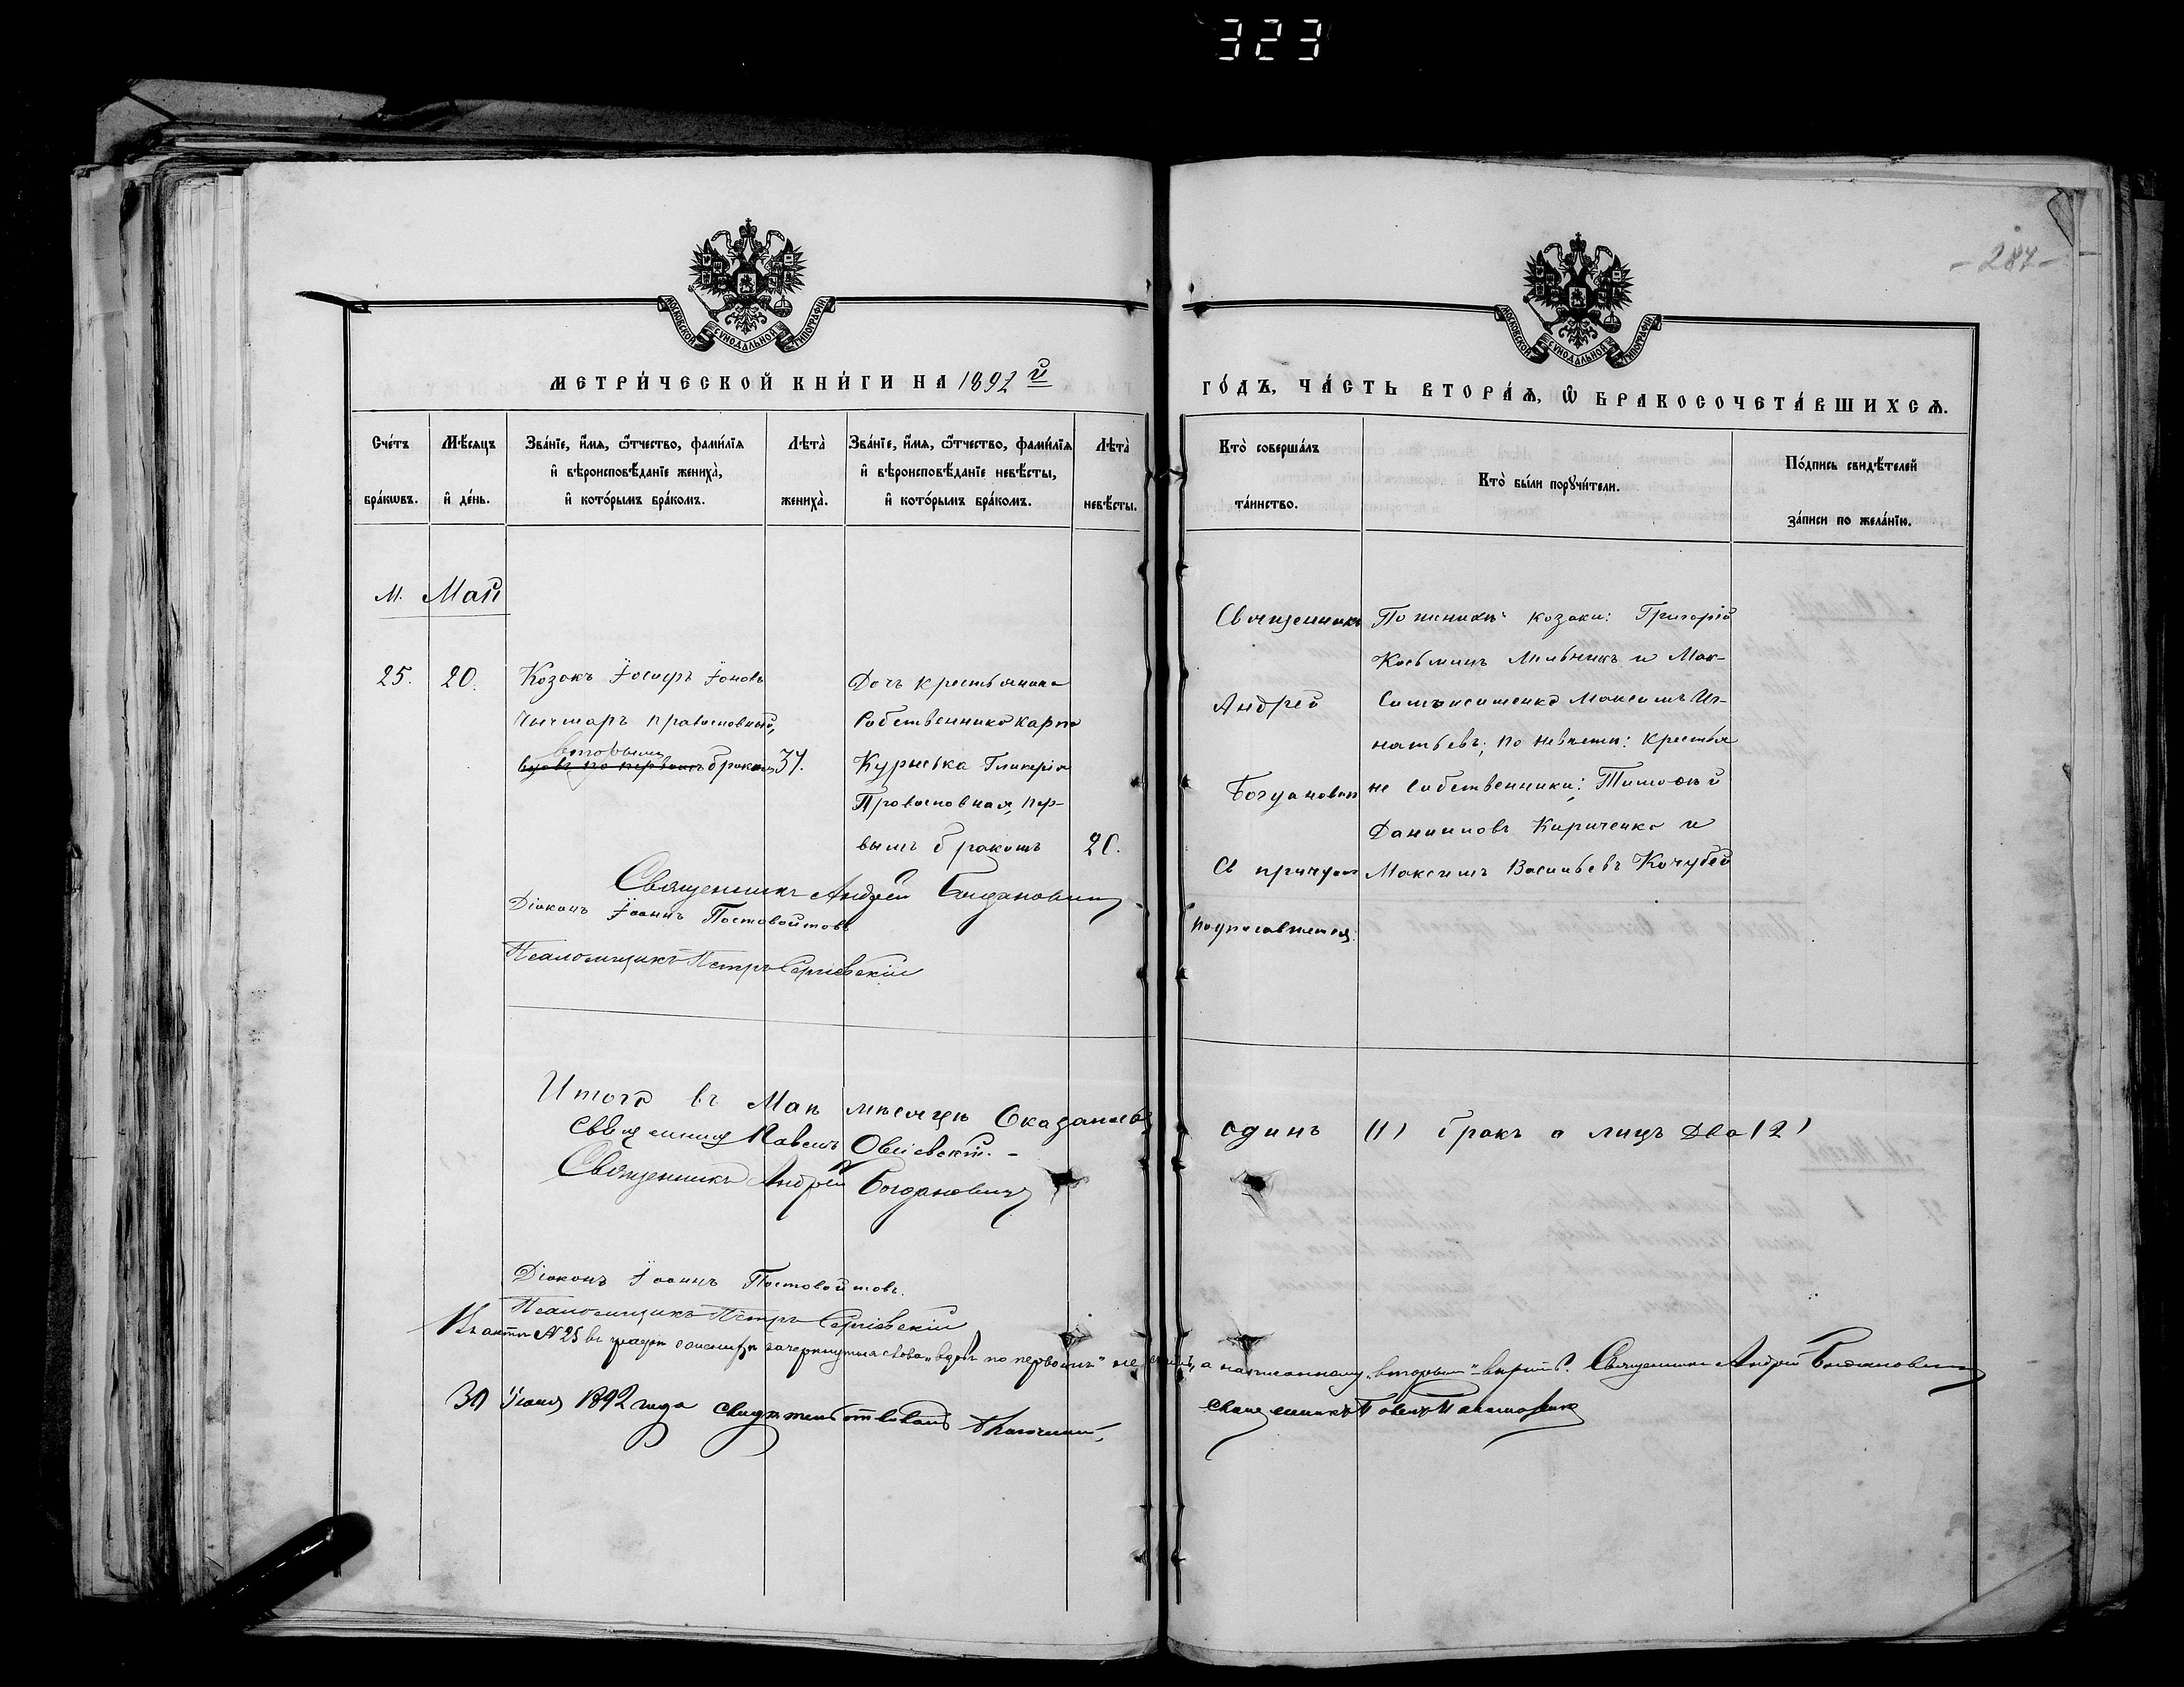 323
- 287 -
МОСКОВСКОЙ СѴНОДАЛЬНОЙ ТИПОГРАФІИ
МОСКОВСКОЙ СѴНОДАЛЬНОЙ ТИПОГРАФІИ
МЕТРИ́ЧЕСКОЙ КНИ́ГИ НА 1892 й
ГО́ДЪ, ЧА́СТЬ ВТОРА́Ѧ, Ѡ҆ БРАКОСОЧЕТА́ВШИХСѦ.
Сче́тъ бра́кѡвъ.
Мѣ́сяцъ и҆ де́нь.
Зва́нїе, и҆́мѧ, ѻ҆́тчество, фами́лїѧ
и҆ вѣроисповѣ́данїе жениха̀,
и҆ кото́рымъ бра́комъ.
Лѣта̀ жениха̀.
Зва́нїе, и҆́мѧ, ѻ҆́тчество, фами́лїѧ
и҆ вѣроисповѣ́данїе невѣ́сты,
и҆ кото́рымъ бра́комъ.
Лѣта̀ невѣ́сты.
Кто̀ соверша́лъ
та́инство.
Кто̀ бы́ли порꙋчи́тели.
По́дпись свидѣ́телей
за́писи по жела́нїю.
М. Май
25. 20.
Козакъ Іосифъ Іоновъ
Чычмаръ православный,
вторымъ
вдовъ по первомъ бракомъ
37.
Дочь крестьянина
Собственника Карпа
Курневка Гликерія
Православная, пер-
вымъ бракомъ
20.
Священникъ
Андрей
Богдановичъ
Съ причтомъ
подписавшемся.
По женихѣ: козаки: Григорій
Козьминъ Мельникъ и Мак-
Максимъ Иг-
натьевъ; по невѣсти: крестья
не Собственники: Тимофѣй
Данииловъ Кириченко и
Максимъ Васильевъ Кочубей
Священникъ Андрей Богдановичъ
Діаконъ Іоаннъ Постовойтовъ
Псаломщикъ Петръ Сергіевскій
Итого въ Маѣ мѣсяцѣ Оказалось один (1) бракъ а лицъ Два (2)
Священникъ Павелъ
Священникъ Андрей Богдановичъ
Діаконъ Іоаннъ Постовойтовъ.
Псаломщикъ Петръ Сергіевскій
Въ актѣ № 25 въ графѣ о женихѣ зачеркнутыя слова „вдовъ по первомъ" не а написанному „вторымъ" вѣрить. Священникъ Андрей Богдановичъ
30 Іюня 1892 года свидѣтельствовалъ Благочинный, священникъ Павелъ